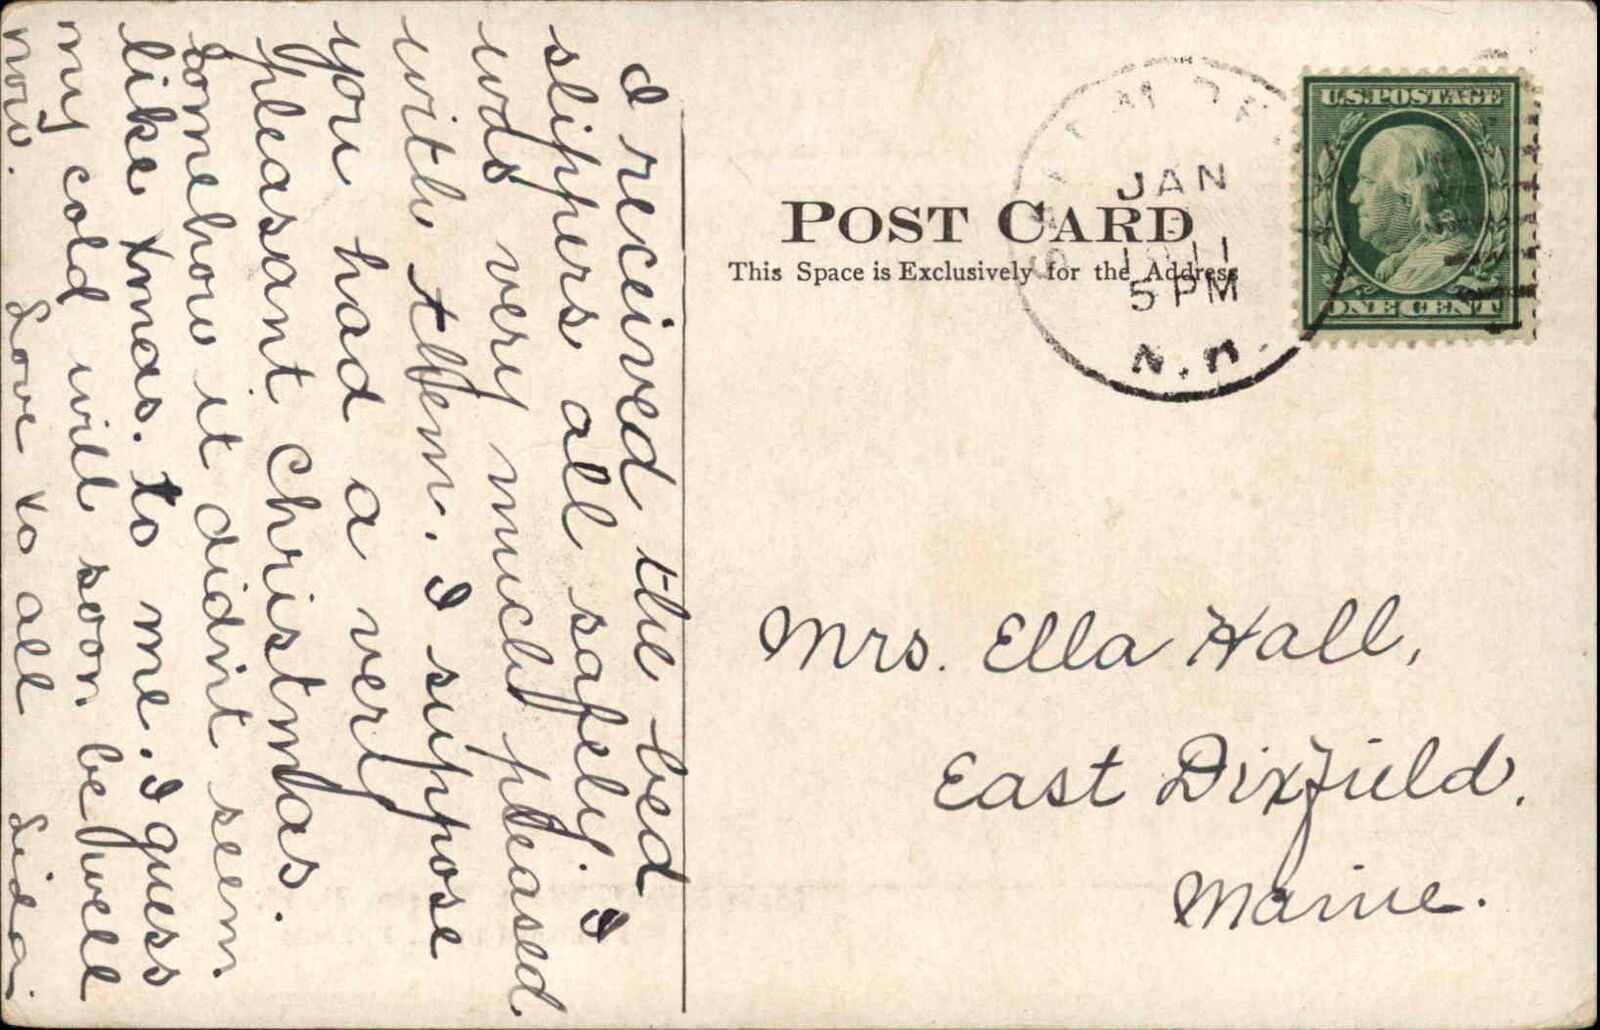 I received the bed
slippers all safely. I
was very much pleased
with them. I suppose
you had a very
pleasant christmas.
Somehow it didnt seem
like Xmas. to me. I guess
my cold will soon be well
now. Love to all Lida.
POST CARD
This Space is Exclusively for the Address
JAN
5 PM
N.H.
U.S. POSTAGE
ONE CENT
Mrs. Ella Hall,
East Dixfield.
Maine.